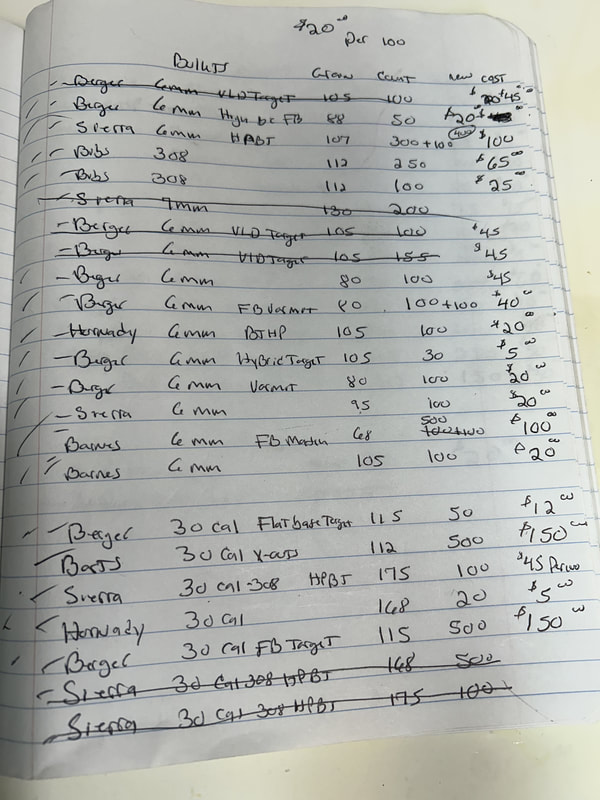 $20 00 Per 100
Bullets Grain Count new cost
Berger 6mm VLD Target 105 100 $45 00
Berger 6mm High bc FB 88 50 $20 00
Sierra 6mm HPBT 107 300+100 400 $100
Bibs 308 112 250 $65 00
Bibs 308 112 100 $25 00
Sierra 7mm 130 200
Berger 6mm VLD Target 105 100 $45
Berger 6mm VLD Target 105 155 $45
Berger 6mm 80 100 $45
Berger 6mm FB Varmit 80 100+100 $40 00
Hornady 6mm BTHP 105 100 $20 00
Berger 6mm Hybrid Target 105 30 $5 00
Berger 6mm Varmit 80 100 $20 00
Sierra 6mm 95 100 $20 00
Barnes 6mm FB 68 500 100+100 $100 00
Barnes 6mm 105 100 $20 00
Berger 30 cal Flat base Target 115 50 $12 00
Barts 30 cal 112 500 $150 00
Sierra 30 cal-308 HPBT 175 100 $45 Per 100
Hornady 30 cal 168 20 $5 00
Berger 30 cal FB Target 115 500 $150 00
Sierra 30 Cal 308 HPBT 168 500
Sierra 30 Cal 308 HPBT 175 100